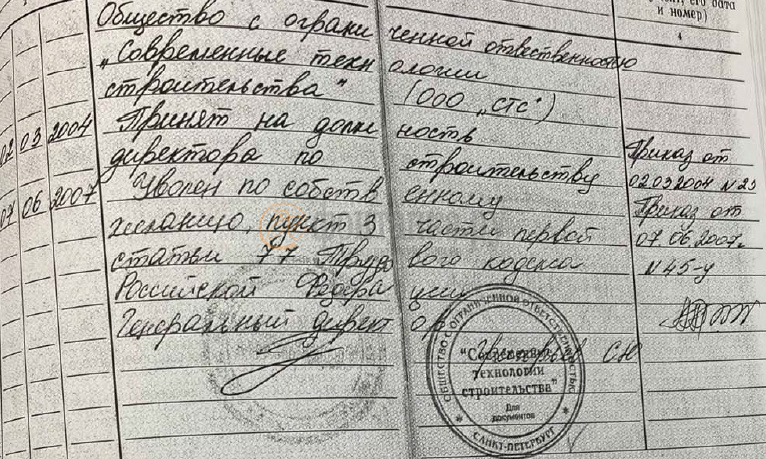 его дата
и номер)
4
Общество с ограниченной отвественностью
„Современные технологии
строительства" (ООО „СТС")
02 03 2004 Принят на должность
директора по строительству Приказ от 02.03.2004 N 23
07 06 2007 Уволен по собственному Приказ от
желанию, пункт 3 части первой 07.06.2007г.
статьи 77 Трудового кодекса N 45-у
Российской Федерации
Генеральный директор
СЮ
ОБЩЕСТВО С ОГРАНИЧЕННОЙ ОТВЕТСТВЕННОСТЬЮ
"Современные
технологии
строительства"
Для
документов
* САНКТ-ПЕТЕРБУРГ *